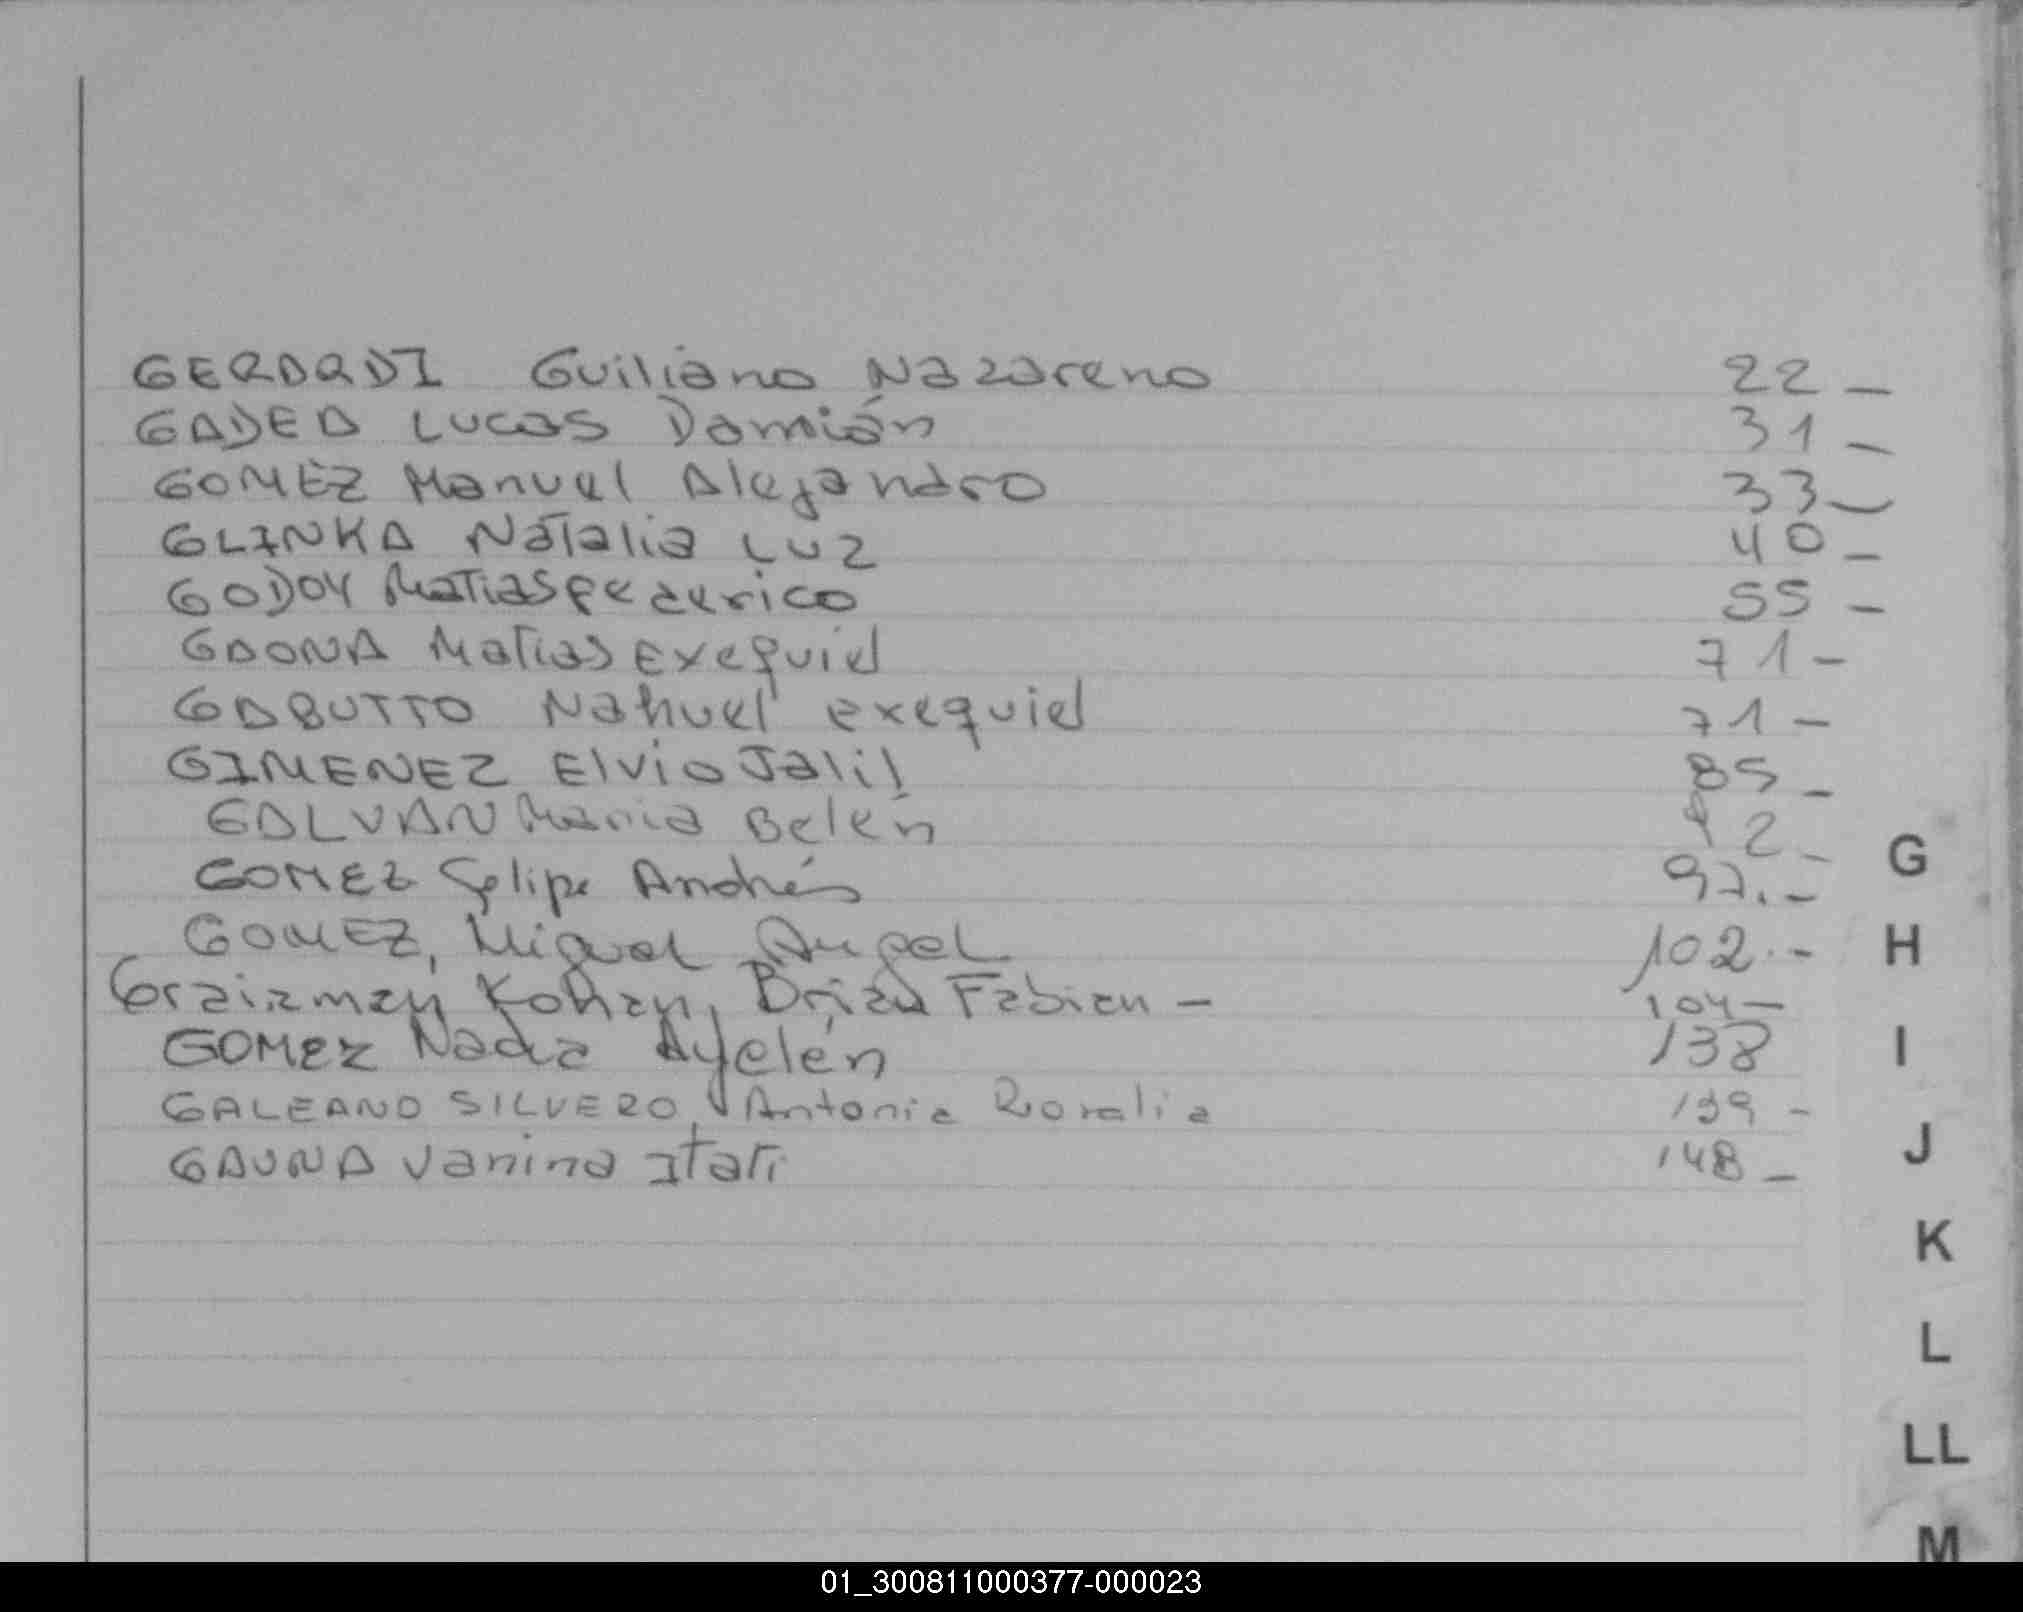 GERARDI Guiliano Nazareno 22 —
GADEA Lucas Damián 31 —
GOMEZ Manuel Alejandro 33 —
GLINKA Natalia Luz 40 —
GODOY Matias Federico 55 —
GAONA Matias Exequiel 71 —
GABUTTO Nahuel exequiel 71 —
GIMENEZ Elvio Jalil 85 —
GALVAN Maria Belén 92 —
GOMEZ Felipe Andrés 97. —
G
GOMEZ, Miguel Angel 102. —
H
Graizman Kohan, Brian Fabian — 104 —
GOMEZ Nadia Ayelén 138
I
GALEANO SILVERO, Antonia Rosalia 139 —
J
GAUNA Vanina Itati 148 —
K
L
LL
M
01_300811000377-000023